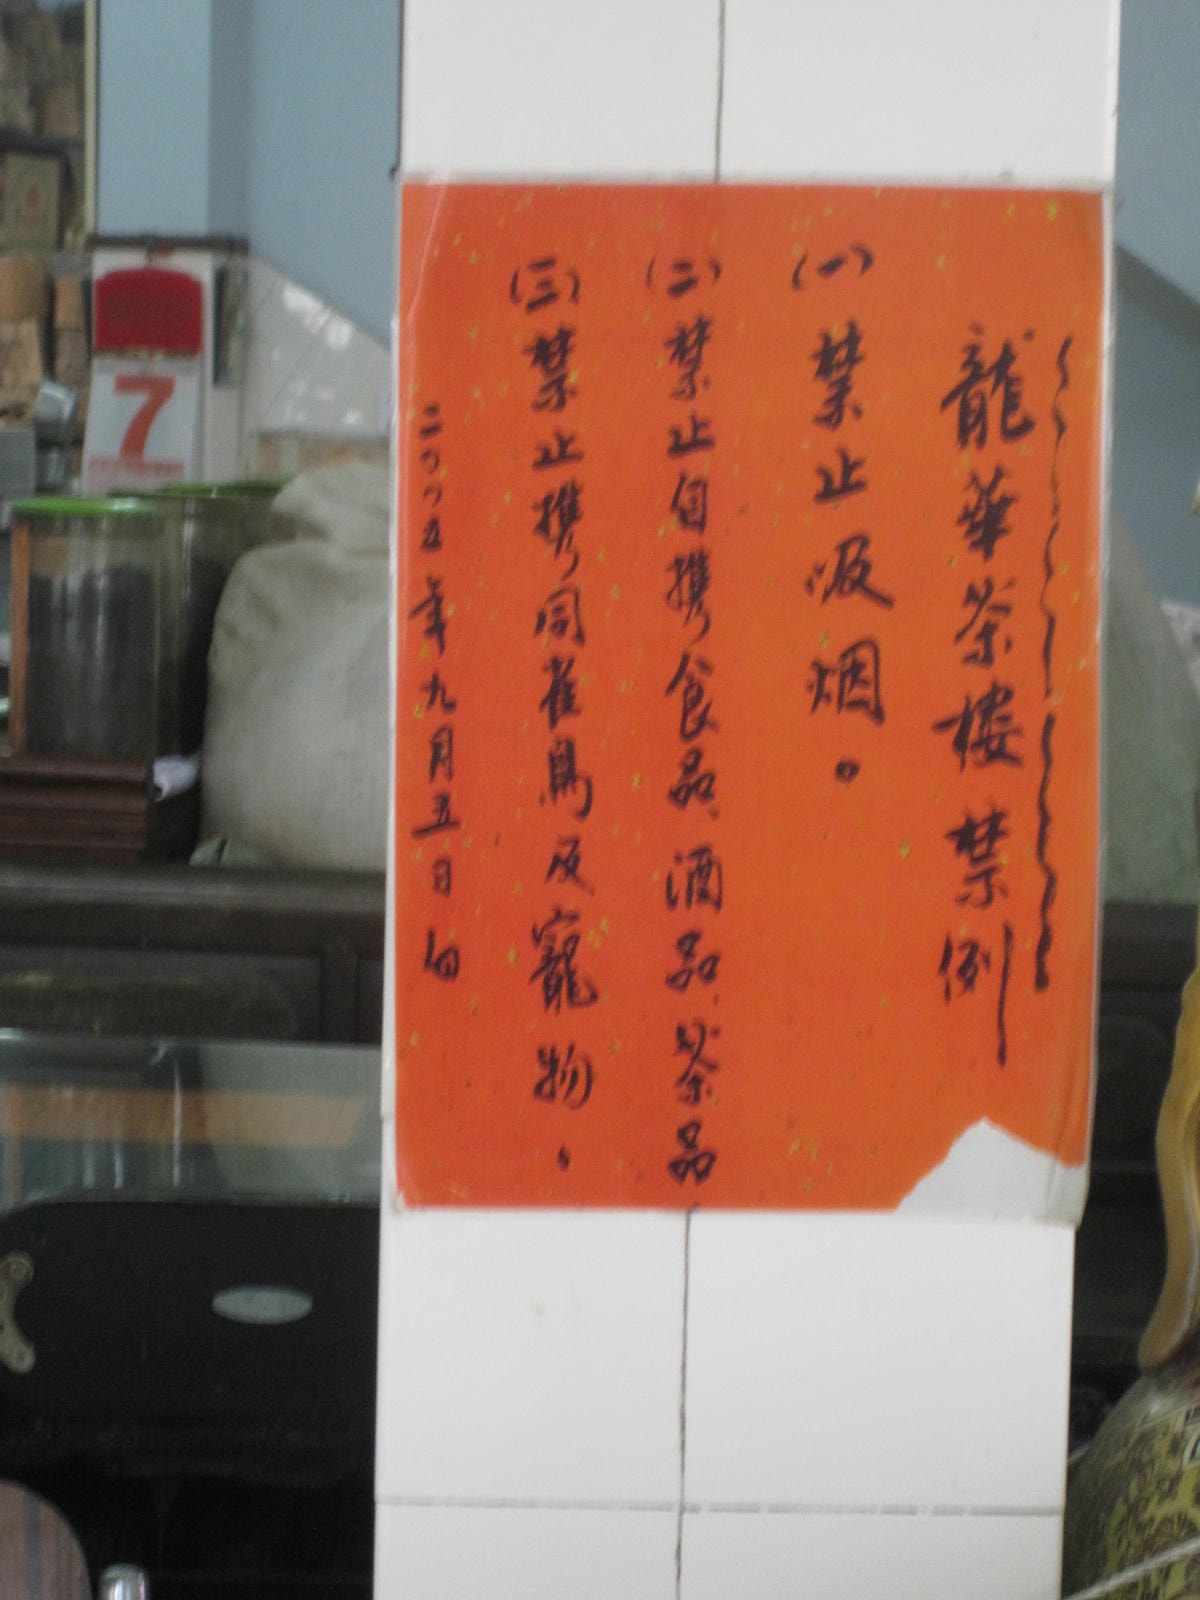 龍華茶樓禁例
(一)禁止吸烟。
(二)禁止自攜食品、酒品、茶品
(三)禁止攜同雀鳥及寵物。
二〇〇五年九月五日啟
7